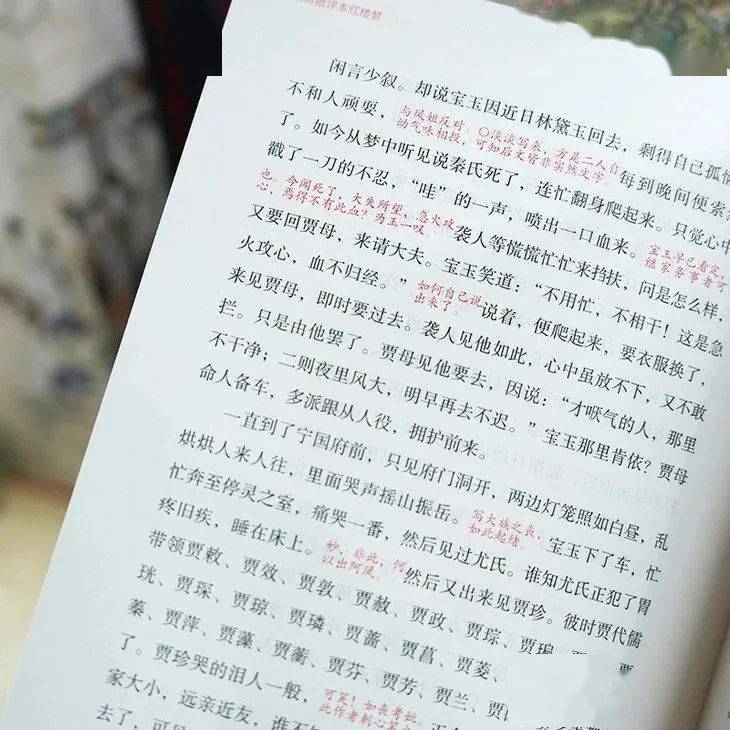 批评本红楼梦
闲言少叙。却说宝玉因近日林黛玉回去，剩得自己孤
不和人顽耍，与凤姐反对 幼气味相投，可知后文皆非突然文字。〇淡淡写来，方是二人自 每到晚间便索
了。如今从梦中听见说秦氏死了，连忙翻身爬起来。只觉心中
戳了一刀的不忍，“哇”的一声，喷出一口血来。宝玉早已看定， 继家务事者可
也。今闻死了，大失所望，急火攻 心，焉得不有此血？为玉一叹 袭人等慌慌忙忙来挡扶，问是怎么样，
又要回贾母，来请大夫。宝玉笑道：“不用忙，不相干！这是急
火攻心，血不归经。”如何自己说 出来了。说着，便爬起来，要衣服换了，
来见贾母，即时要过去。袭人见他如此，心中虽放不下，又不敢
拦。只是由他罢了。贾母见他要去，因说：“才咽气的人，那里
不干净；二则夜里风大，明早再去不迟。”宝玉那里肯依？贾母
命人备车，多派跟从人役，拥护前来。
一直到了宁国府前，只见府门洞开，两边灯笼照如白昼，乱
烘烘人来人往，里面哭声摇山振岳。写大族之丧， 如此起绪。宝玉下了车，忙
忙奔至停灵之室，痛哭一番，然后见过尤氏。谁知尤氏正犯了胃
疼旧疾，睡在床上。妙，非此，何 以出阿凤。然后又出来见贾珍。彼时贾代儒
带领贾敕、贾效、贾敦、贾赦、贾政、贾琮、贾㻞、
珖、贾琛、贾琼、贾璘、贾蔷、贾菖、贾菱、
蓁、贾萍、贾藻、贾蘅、贾芬、贾芳、贾兰、
了。贾珍哭的泪人一般，可笑！如丧考妣。 此作者刺心
家大小，远亲近友，谁不
去了，可见